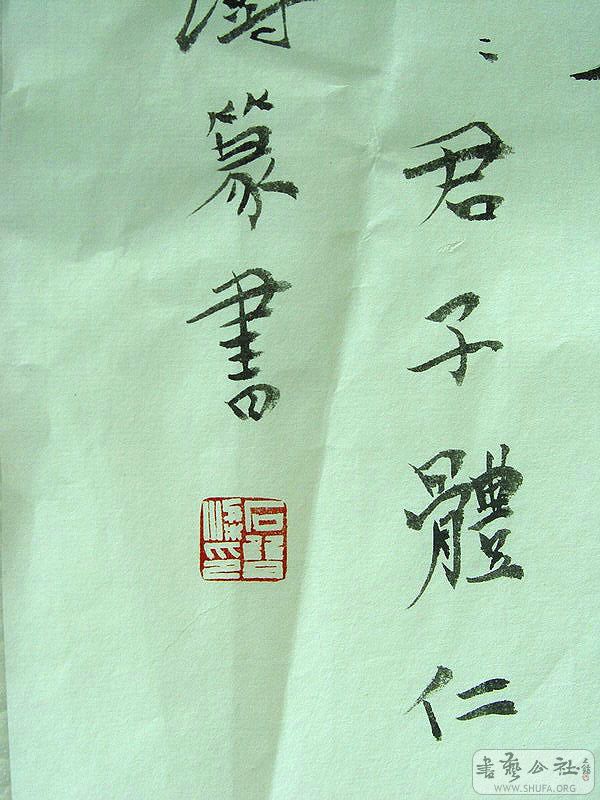 君子體仁
篆書
書藝公社
WWW.SHUFA.ORG